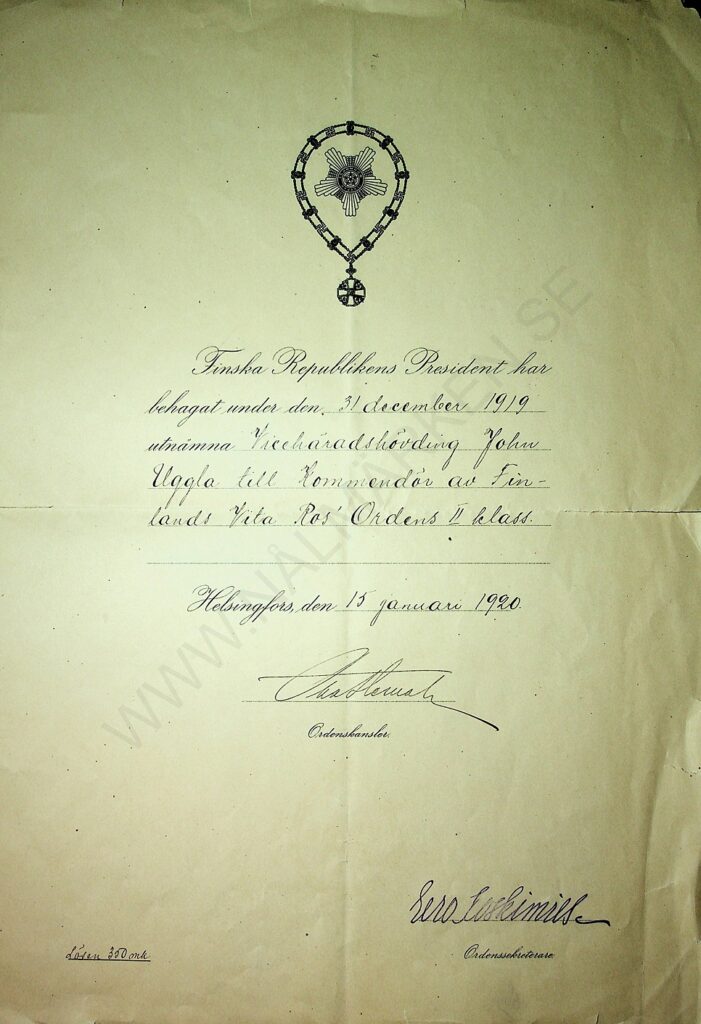 Finska Republikens President har
behagat under den 31 december 1919
utnämna Vicehäradshövding John
Uggla till Kommendör av Fin-
lands Vita Ros' Ordens II klass.
Helsingfors, den 15 januari 1920.
Ordenskansler.
Eero
Ordenssekreterare
Lösen 350 mk
WWW.NÅLMÄRKEN.SE